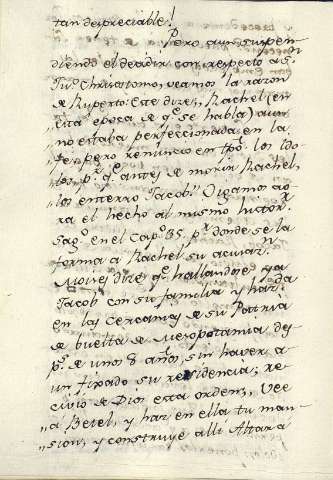 tan despreciable!
Pero aun suspen
diendo el deadir con respecto a S.
Juⁿ Chrisostomo, veamos la razon
de Ruperto: Este dize, Rachel (en
"esta epoca de q.ᵉ se habla) aun
"no estaba perfeccionada en la
"fe; pero renuncio en tpo. los Ido
los, p.ʳ q.ᵉ antes de morir Rachel,
"los enterro Jacob." Oigamos ao
ra el hecho al mismo histor.ʳ
Sag.ᵒ en el Cap.ᵒ 35. p.ʳ donde se la
forma a Rachel su acusaz.ⁿ
Moises dize q.ᵉ hallandose ya
Jacob con su familia y haz.ᵈᵃ
en las Cercanias de su Patria
de buelta de Mesopotamia des
p.ˢ de unos 8 años, sin haver a
un fixado su residencia; re
civio de Dios esta orden; "Vee
"a Betel, y haz en ella tu man
"sion, y construye alli Altar a